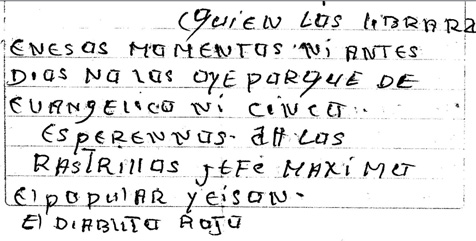 ¿QUIEN LOS LIBRARA
EN ESOS MOMENTOS NI ANTES
DIOS NO LOS OYE PORQUE DE
EVANGELICO NI CINCO..
ESPERENNOS. Att LOS
RASTRILLOS JEFE MAXIMO
El POPUlAR YEISON.
El DIABLITO ROJO